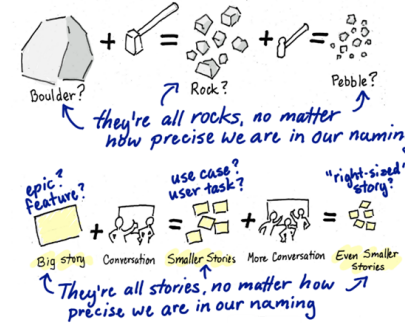 Boulder?
Rock?
Pebble?
they're all rocks, no matter
how precise we are in our naming
epic?
feature?
use case?
user task?
"right-sized"
story?
Big story
Conversation
Smaller Stories
More Conversation
Even Smaller
Stories
They're all stories, no matter how
precise we are in our naming